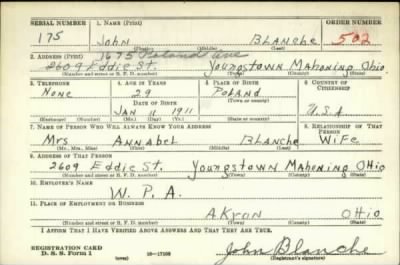 SERIAL NUMBER 1. NAME (Print) ORDER NUMBER
175 John Blanche 502
(First) (Middle) (Last)
1675 Poland Ave
2. ADDRESS (Print)
2609 Eddie St. Youngstown Mahoning Ohio
(Number and street or R. F. D. number) (Town) (County) (State)
3. TELEPHONE 4. AGE IN YEARS 5. PLACE OF BIRTH 6. COUNTRY OF CITIZENSHIP
None 29 Poland
DATE OF BIRTH (Town or county)
Jan 11 1911 U.S.A
(Exchange) (Number) (Mo.) (Day) (Yr.) (State or country)
7. NAME OF PERSON WHO WILL ALWAYS KNOW YOUR ADDRESS 8. RELATIONSHIP OF THAT PERSON
Mrs Annabel Blanche Wife
(Mr., Mrs., Miss) (First) (Middle) (Last)
9. ADDRESS OF THAT PERSON
2609 Eddie St. Youngstown Mahoning OHio
(Number and street or R. F. D. number) (Town) (County) (State)
10. EMPLOYER'S NAME
W. P. A.
11. PLACE OF EMPLOYMENT OR BUSINESS
Akron OHio
(Number and street or R. F. D. number) (Town) (County) (State)
I AFFIRM THAT I HAVE VERIFIED ABOVE ANSWERS AND THAT THEY ARE TRUE.
REGISTRATION CARD
D. S. S. Form 1 (over) 16—17105 John Blanche
(Registrant's signature)